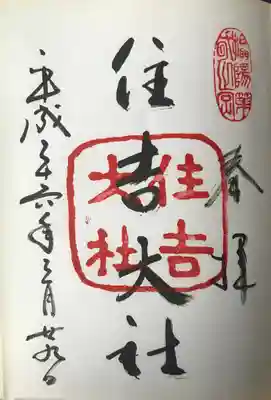 奉拝
住吉大社
住吉大社
平成二十六年三月廿九日